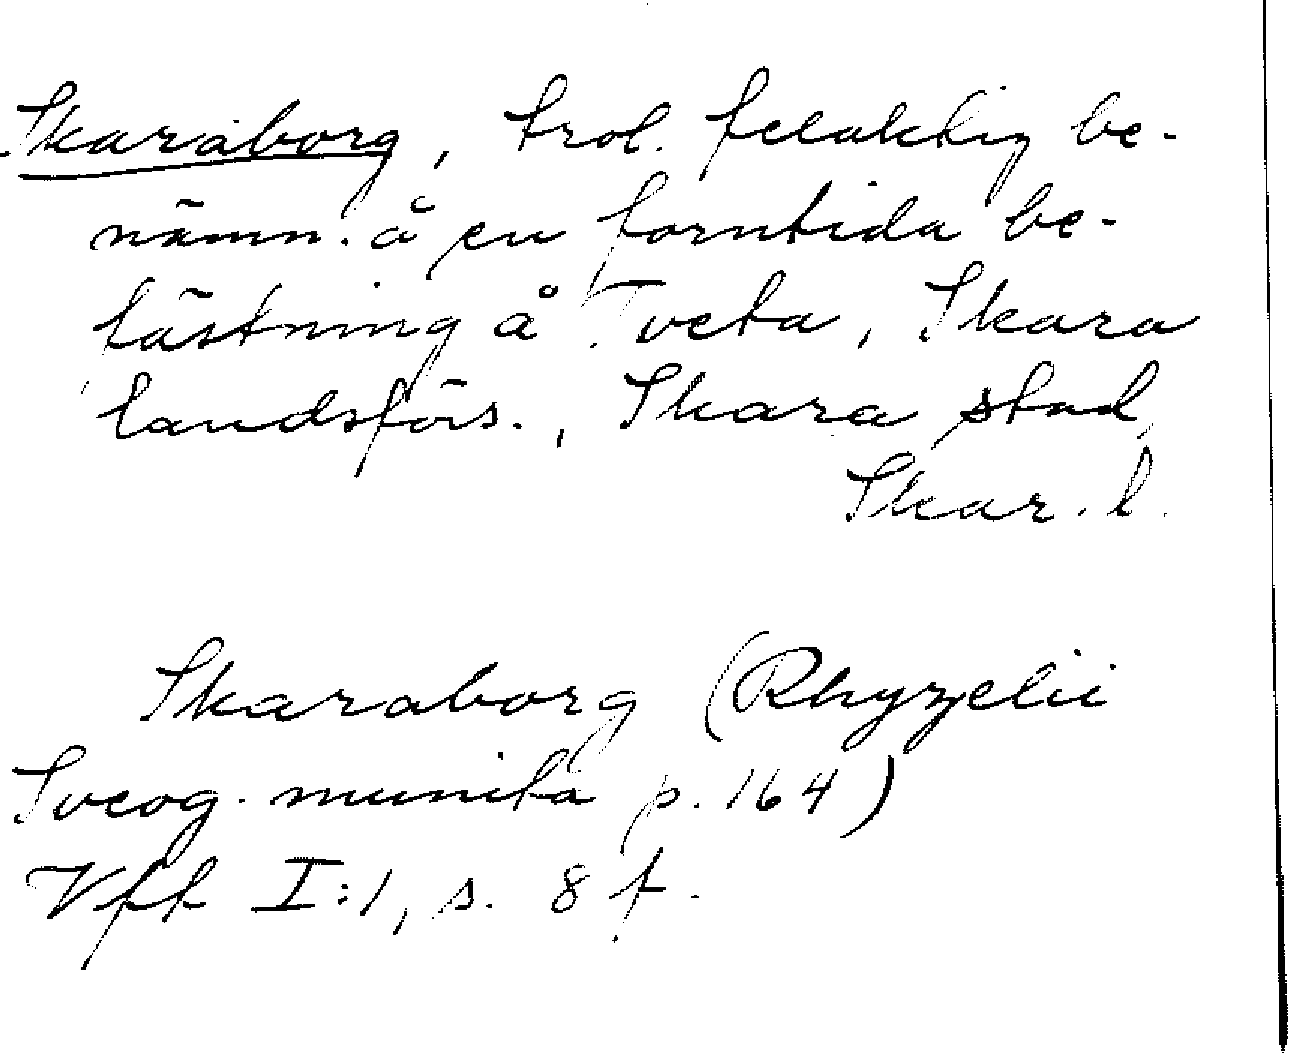 Skaraborg, trol. felaktig be-
nämn. å en forntida be-
fästning å Tveta, Skara
landsförs., Skara stad,
Skar. l.
Skaraborg (Rhyzelii
Sveog. munita p. 164)
Vfft I:1, s. 8 f.